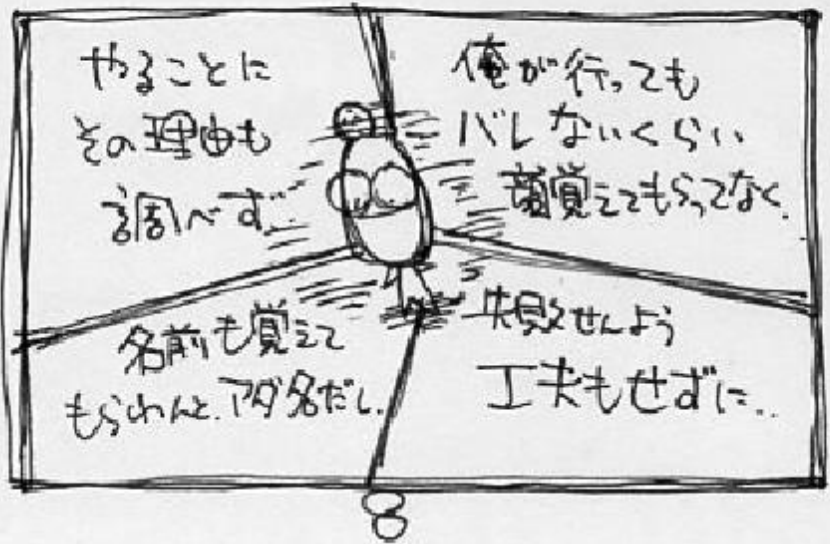 俺が行っても
バレないくらい
顔覚えてもらってなく
やることに
その理由も
調べず
失敗せんよう
工夫もせずに..
名前も覚えて
もらわんと.アダ名だし.